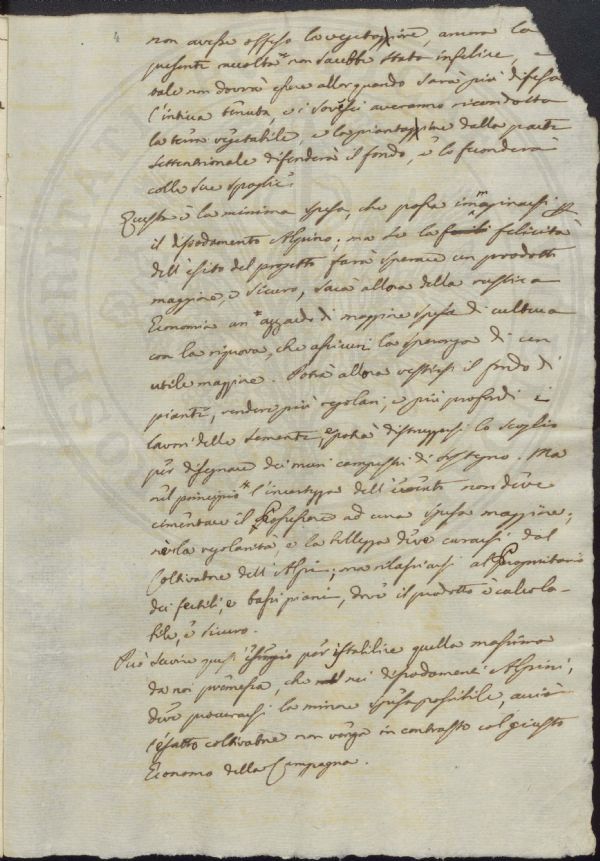 4
non avesse offeso la vegetazione, ancora la
presente raccolta non sarebbe stata infelice, e
tale non dovrà essere allorquando sarà più difesa
l'intiera tenuta, e i sovesci averanno ricondotta
la terra vegetabile, e la piantazione dalla parte
settentrionale difenderà il fondo, e lo feconderà
colle sue spoglie.
Questa è la minima spesa, che possa immaginarsi per
il dissodamento Alpino; ma se la felicità
dell'esito del progetto farà sperare un prodotto
maggiore, e sicuro, sarà allora della rustica
Economia un azzardo di maggiore spesa di cultura
con la riprova, che assicuri la speranza di un
utile maggiore. Potrà allora vestirsi il fondo di
piante, rendere più regolari, e più profondi i
lavori delle sementi, e potrà distruggersi lo scoglio
per disegnare dei muri campestri di sostegno. Ma
nel principio l'incertezza dell'evento non deve
cimentare il Possessore ad una spesa maggiore;
nè la regolarità, e la bellezza deve curarsi dal
Coltivatore dell'Alpi; ma rilasciarsi al Proprietario
dei fertili, e bassi piani, dove il prodotto è calcola-
bile, e sicuro.
Può servire quest' per istabilire quella massima
da noi premessa, che nei dissodamenti Alpini,
deve procurarsi la minore spesa possibile, acciò
l'esatto coltivatore non venga in contrasto col giusto
Economo della Campagna.